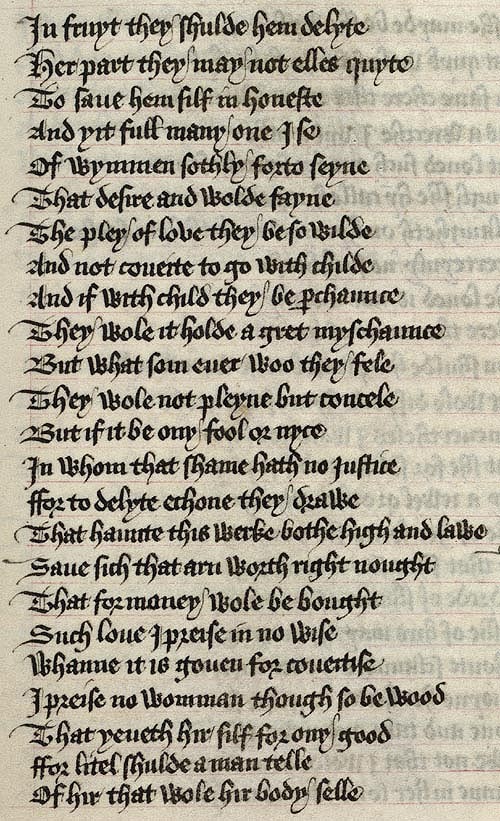 In fruyt they shulde hem delyte
Her part they may not elles quyte
To saue hem silf in honeste
And yit full many one I se
Of wymmen sothly forto seyne
That desire and wolde fayne
The pley of love they be so wilde
And not coueite to go with childe
And if with child they be ꝑchaunce
They wole it holde a gret myschaunce
But what som euer woo they fele
They wole not pleyne but concele
But if it be ony fool or nyce
In whom that shame hath no justice
ffor to delyte echone they drawe
That haunte this werke bothe high and lawe
Saue sich that arn worth right nought
That for money wole be bought
Such loue I preise in no wise
Whanne it is gouen for coueitise
I preise no womman though so be wood
That yeueth hir silf for ony good
ffor litel shulde a man telle
Of hir that wole hir body selle